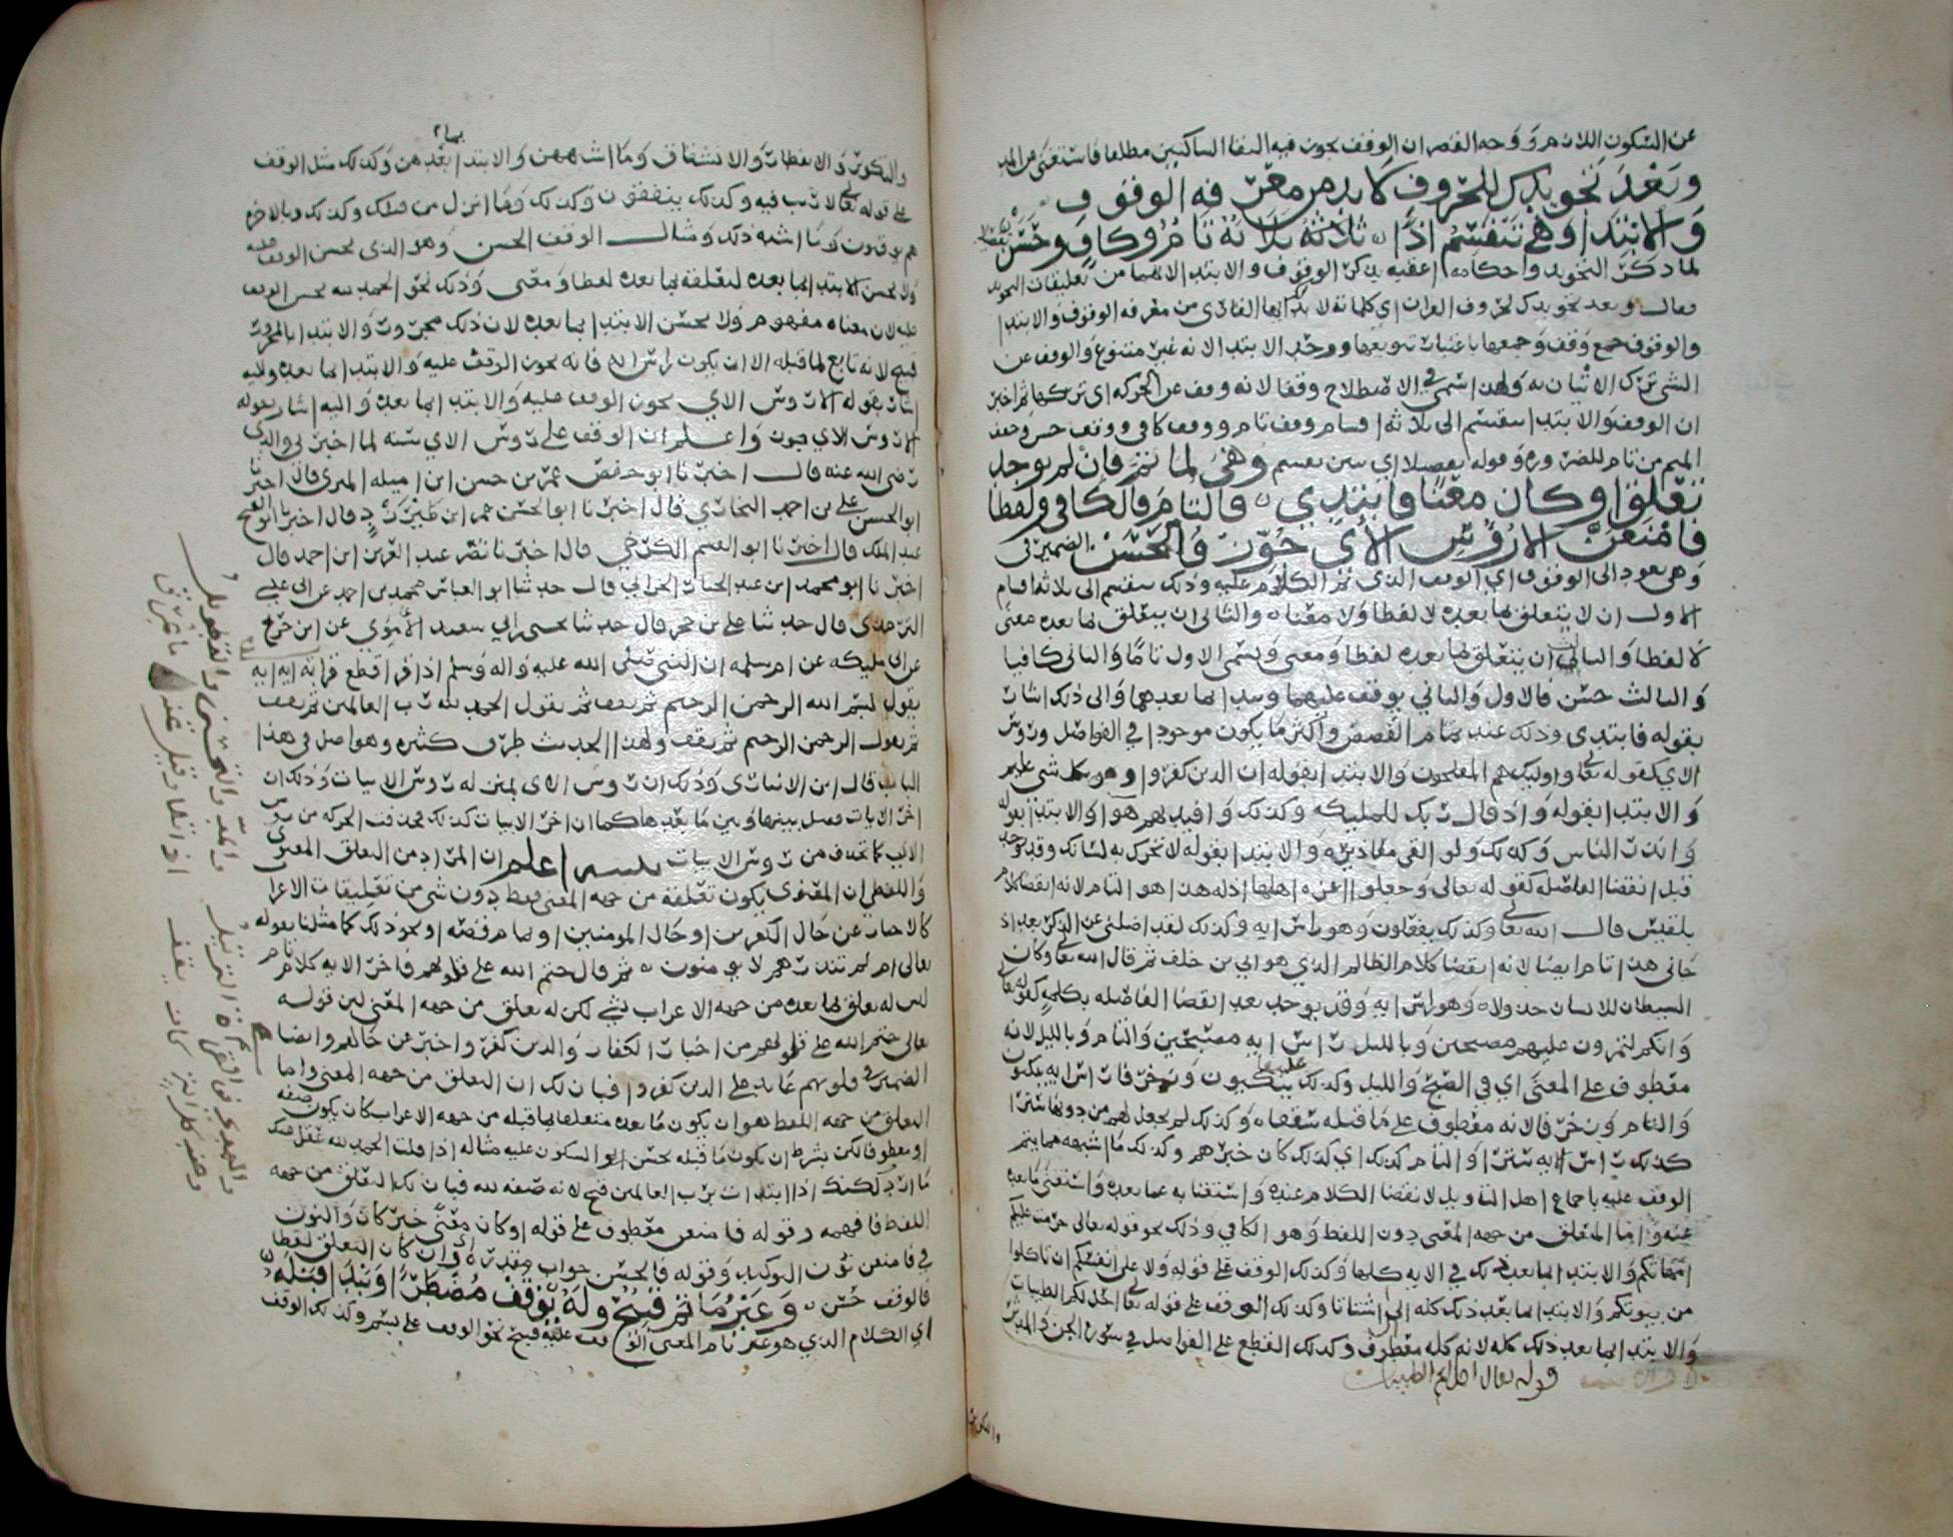 عن السكون اللازم ووجه القصر ان الوقف يجوز فيه التقا الساكنين مطلقا فاستغنى عن المد
وبعد تجويدك للحروف لا بد من معرفة الوقوف
والابتدا وهي تنقسم اذا ثلاثة تام وكاف وحسن
لما ذكر التجويد واحكامه اعقبه بذكر الوقوف والابتدا لانهما من تعليقات التجويد
فقال وبعد تجويدك لحروف القران اي كلماته لا بد لك ايها القارى من معرفة الوقوف والابتدا
والوقوف جمع وقف وجمعها باعتبار تنويعها ووحد الابتدا لانه غير متنوع والوقف عن
الشي ترك الاتيان به ولهذا سمي في الاصطلاح وقفا لانه وقف عن الحركة اي تركها ثم اخبر
ان الوقف والابتدا ينقسم الى ثلاثة اقسام وقف تام ووقف كافي ووقف حسن وخفف
الميم من تام للضرورة وقوله تفصيلا اي حين تقسم وهي لما تم فان لم يوجد
تعلق او كان معنا فابتدي فالتام فالكافي ولفظا
فامنعن الا رؤس الاي جوز فالحسن الضمير في
وهي يعود الى الوقوف اي الوقف الذي تم الكلام عليه وذلك ينقسم الى ثلاثة اقسام
الاول ان لا يتعلق بما بعده لا لفظا ولا معنا والثاني ان يتعلق بما بعده معنى
لا لفظا والثالث ان يتعلق بما بعده لفظا ومعنى ويسمى الاول تاما والثاني كافيا
والثالث حسن فالاول والثاني يوقف عليهما ويبتدا بما بعدهما والى ذلك اشار
بقوله فابتدى وذلك عند تمام القصص واكثر ما يكون موجودا في الفواصل ورؤس
الاي كقوله تعا واوليك هم المفلحون والابتدا بقوله ان الذين كفروا وهو بكل شي عليم
والابتدا بقوله واذ قال ربك للمليكة وكذلك وافيدتهم هوا والابتدا بقوله
وانذر الناس وكذلك ولو القى معاذيره والابتدا بقوله لا تحرك به لسانك وقد يوجد
قبل انقضا الفاصلة كقوله تعالى وجعلوا اعزه اهلها اذله هذا هو التام لانه انقضا كلام
بلقيس قال الله تعا وكذلك يفعلون وهو راس ايه وكذلك لقد اضلنى عن الذكر بعد اذ
جانى هذا تام ايضا لانه انقضا كلام الظالم الذي هو ابي بن خلف ثم قال الله تعا وكان
الشيطان للانسان خذولا وهو راس ايه وقد يوجد بعد انقضا الفاصله بكلمة كقوله تعا
وانكم لتمرون عليهم مصبحين وبالليل راس ايه مصبحين والتام وبالليل لانه
معطوف على المعنى اي في الصبح والليل وكذلك عليها يتكيون وزخرفا راس ايه يتكيون
والتام وزخرفا لانه معطوف على ما قبله سقفا وكذلك لم نجعل لهم من دونها سترا
كذلك راس الايه سترا والتام كذلك اي كذلك كان خبرهم وكذلك ما اشبهه مما يتم
الوقف عليه باجماع اهل التاويل لانقضا الكلام عنده واستغنا به عما بعده واستغنى ما بعده
عنه واما المتعلق من جهة المعنى دون اللفظ وهو الكافي وذلك نحو قوله تعالى حرمت عليكم
امهاتكم والابتدا بما بعد ذلك في الايه كلها وكذلك الوقف على قوله ولا على انفسكم ان تاكلوا
من بيوتكم والابتدا بما بعد ذلك كله الى اشتاتا وكذلك الوقف على قوله تعا احل لكم الطيبات
والابتدا بما بعد ذلك كله لانه كله معطوف وكذلك القطع على الفواصل في سورة الجن والمدثر
قوله تعالى احل لكم الطيبات
والتكوير
والتكوير والانفطار والانشقاق وما اشبههن والابتدا بما بعدهن وكذلك مثل الوقف
على قوله تعا لا ريب فيه وكذلك ينفقون وكذلك وما انزل من قبلك وكذلك وبالاخرة
هم يوقنون وما اشبه ذلك ومثال الوقف الحسن وهو الذي يحسن الوقف عليه
ولا يحسن الابتدا بما بعده لتعلقه بما بعده لفظا ومعنى وذلك نحو الحمد لله يحسن الوقف
عليه لان معناه مفهوم ولا يحسن الابتدا بما بعده لان ذلك مجرور والابتدا بالمجرور
قبيح لانه تابع لما قبله الا ان يكون راس اية فانه يجوز الوقف عليه والابتدا بما بعده واليه
اشار بقوله الا رؤس الاي يجوز الوقف عليه والابتدا بما بعده واليه اشار بقوله
الا رؤس الاي جوز واعلم ان الوقف على رؤس الاي سنه لما اخبرني والدي
رضى الله عنه قال اخبرنا ابو حفص عمر بن حسن ابن اميله المزى قال اخبرنا
ابو الحسن على بن احمد البخاري قال اخبرنا ابو الحسن عمر ابن طبرزد قال اخبرنا ابو الفتح
عبد الملك قال اخبرنا ابو القسم الكرخي قال اخبرنا نصر عبد العزيز ابن احمد قال
اخبرنا ابو محمد ابن عبد الجبار الجراحي قال حدثنا ابو العباس محمد بن احمد عن ابى عيسى
الترمذى قال حدثنا علي بن حجر قال حدثنا يحيى ابن سعيد الاموي عن ابن جريج
عن ابى مليكه عن ام سلمه ان النبي صلى الله عليه واله وسلم اذا قرا قطع قراته ايه ايه
يقول بسم الله الرحمن الرحيم ثم يقف ثم يقول الحمد لله رب العالمين ثم يقف
ثم يقول الرحمن الرحيم ثم يقف ولهذا الحديث طرق كثيره وهو اصل في هذا
الباب قال ابن الانبارى وذلك ان رؤس الاى بمنزلة رؤس الابيات وذلك ان
اخر الايات فصل بينها وبين ما بعدها كما ان اخر الابيات كذلك تحذف الحركه من
الاي كما تحذف من رؤس الابيات تنبيه اعلم ان المراد من التعلق المعنوى
واللفظى ان المعنوى يكون تعلقه من جهة المعنى فقط دون شي من تعليقات الاعرا
كالاخبار عن حال الكفرين او حال المومنين او تمام قصه او نحو ذلك كما مثلنا بقوله
تعالى ام لم تنذرهم لا يومنون ثم قال ختم الله على قلوبهم فاخر الايه كلام تام
ليس له تعلق بما بعده من جهة الاعراب شي لكن له تعلق من جهة المعنى لان قوله
تعالى ختم الله على قلوبهم من اخبار الكفار والذين كفروا اخبر عن حالهم وايضا
الضمير في قلوبهم عايد على الذين كفروا فبان لك ان التعلق من جهة المعنى واما
التعلق من جهة اللفظ هو ان يكون ما بعده متعلقا بما قبله من جهة الاعراب كان يكون صفه
او معطوفا لكن بشرط ان يكون ما قبله يحسن السكون عليه مثاله اذا قلت الحمد لله عقل عنك
ما اردت لكنك اذا ابتدات برب العالمين قبح لانه صفه لله فبان لك التعلق من جهة
اللفظ فافهمه وقوله فامنعن معطوف على قوله او كان معنى خبر كان والنون
في فامنعن نون التوكيد وقوله فالحسن جواب مقدر اي وان كان التعلق لفظا
فالوقف حسن وغير ما تم قبيح وله يوقف مضطرا ويبدا قبله
اي الكلام الذي هو غير تام المعنى الوقف عليه قبيح نحو الوقف على بسم وكذلك الوقف